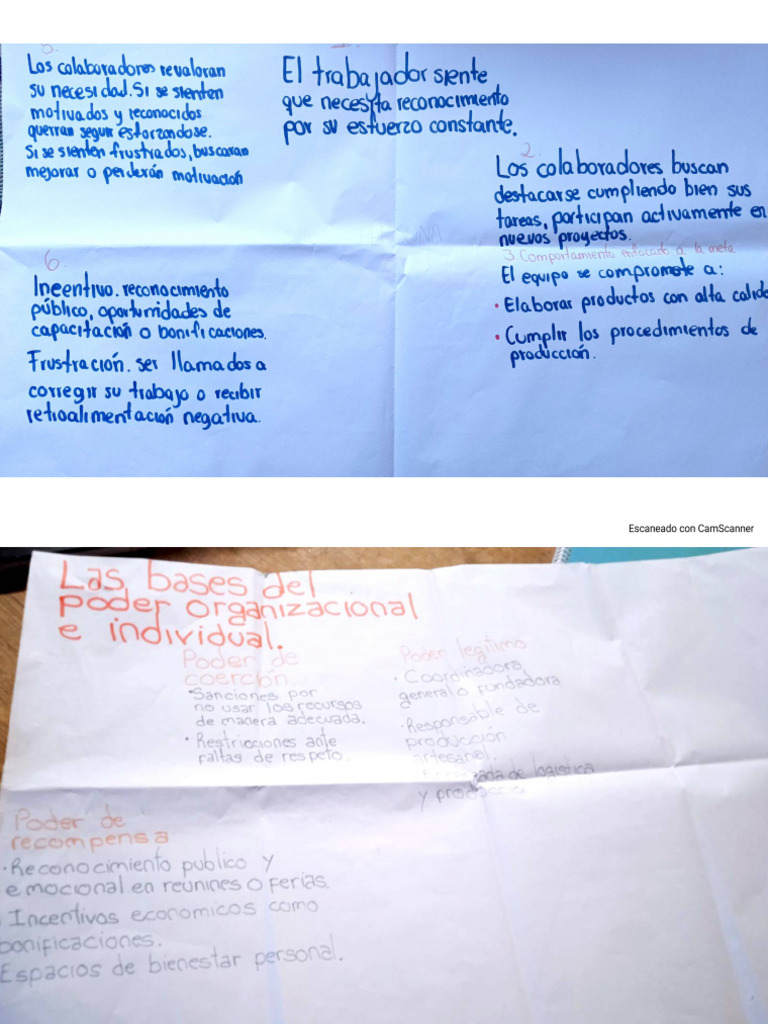 5.
Los colaboradores revaloran
su necesidad. Si se sienten
motivados y reconocidos
querran seguir esforzandose.
Si se sienten frustrados, buscaran
mejorar o perderán motivación
El trabajador siente
que necesita reconocimiento
por su esfuerzo constante.
2.
Los colaboradores buscan
destacarse cumpliendo bien sus
tareas, participan activamente en
nuevos proyectos.
3. Comportamiento enfocado a la meta
El equipo se compromete a:
• Elaborar productos con alta calida
• Cumplir los procedimientos de
producción.
6.
Incentivo. reconocimiento
público, oportunidades de
capacitación o bonificaciones.
Frustración. ser llamados a
corregir su trabajo o recibir
retroalimentación negativa.
Escaneado con CamScanner
Las bases del
poder organizacional
e individual.
Poder de
coerción
• Sanciones por
no usar los recursos
de manera adecuada.
• Restricciones ante
faltas de respeto.
Poder legitimo
• Coordinadora
general o fundadora
• Responsable de
producción
artesanal.
de logistica
y
Poder de
recompensa
• Reconocimiento publico y
emocional en reunines o ferias.
Incentivos economicos como
bonificaciones.
Espacios de bienestar personal.